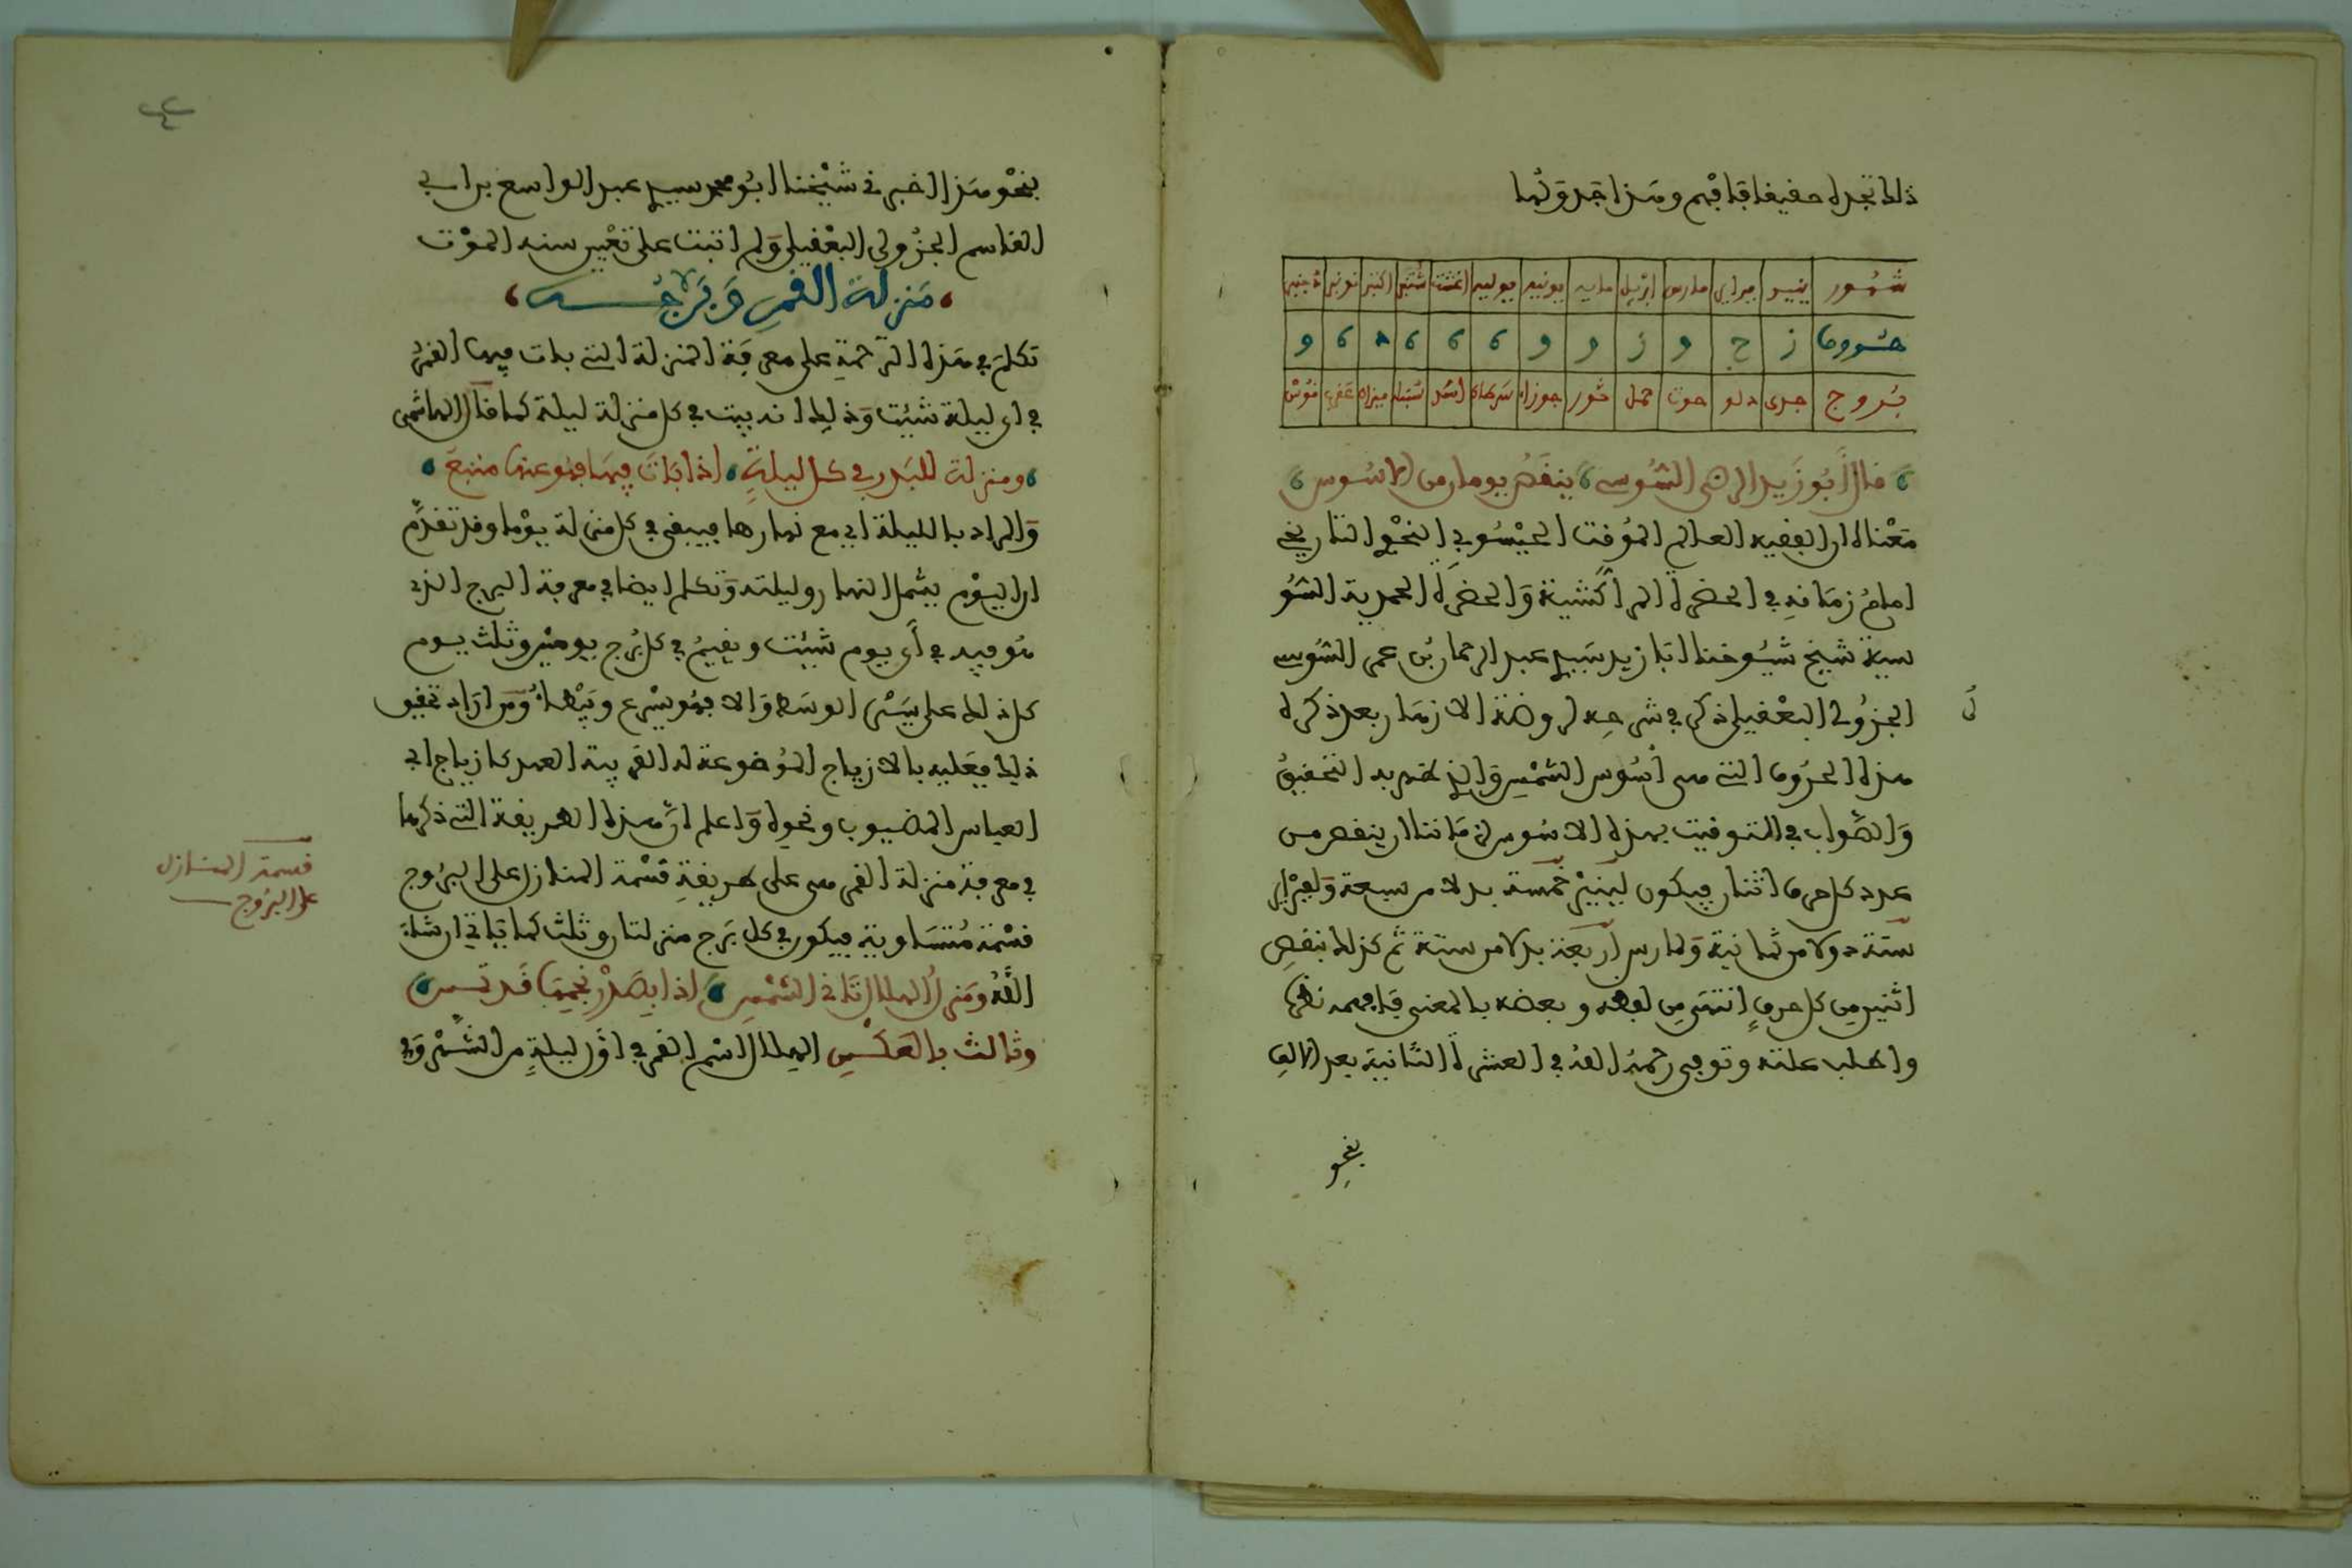 ذلك تجده حقيقا فافهم وهذا جدولها
شهور ينيو مارس ابريل مايه يونيه يوليه اغشت شتنبر اكتبر نونبر دجنبر
حروف ز ح و ز و و ه ه ه د ه و
بروج جدى دلو حوت حمل ثور جوزاء سرطان اسد سنبلة ميزان عقرب قوس
قال أبو زيد الرضى السوسي ينقص يوما من الاسوس
معناه ان الفقيه العالم الموقت الحيسوبي النحوي التاريخي
امام زمانه في الحضرة المراكشية والحضرة المحمدية السو
سية شيخ شيوخنا ابا زيد سيدي عبد الرحمان بن عمر السوسي
الجزولي البعقيلي ذكر في شرحه لروضة الازهار بعد ذكره
هذه الحروف التي هي أسوس الشمس والذي التحقيق
والصواب في التوقيت بهذه الاسوس لزماننا ان ينقص من
عدد كل حرف اثنان فيكون لينير خمسة بدلا من سبعة ولفبراير
ستة بدلا من ثمانية ولمارس أربعة بدلا من ستة ثم كذلك ينقص
اثنين من كل حرف انتهى من لفظه وبعضه بالمعنى فافهمه
واطلب علته وتوفي رحمه الله في العشرة الثانية بعد الالف
بنحو
بنحو هذا اخبرني شيخنا ابو محمد سيدي عبد الواسع بن ابي
القاسم الجزولي البعقيلي ولم اثبت على تعيين سنة الموت
منزلة القمر وبرجه
تكلم في هذه الترجمة على معرفة المنزلة التي بات فيها القمر
في اي ليلة شئت وذلك انه يبيت في كل منزلة ليلة كما قال الهاشمي
ومنزلة للبدر في كل ليلة اذا بات فيها فهو عنها
والمراد بالليلة اي مع نهارها فيبقى في كل منزلة يوما وقد تقدم
ان اليوم يشمل النهار وليلته وتكلم ايضا في معرفة البرج الذي
هو فيه في أي يوم شئت ويقيم في كل برج يومين وثلث يوم
كل ذلك على سير الوسط والا فهو يسرع ويبطئ ومن اراد تحقيق
ذلك فعليه بالازياج الموضوعة له القريبة العهد كازياج ابي
العباس ونحوه واعلم أن هذه الطريقة التي ذكرها
في معرفة منزلة القمر هي على طريقة قسمة المنازل على البروج
قسمة متساوية فيكون في كل برج منزلتان وثلث كما ياتي ان شاء
الله ومنزل الهلال ثاني الشمس اذا
وثالث بالعكس الهلال اسم القمر في أول ليلة من الشهر وفي
قسمة المنازل
على البروج